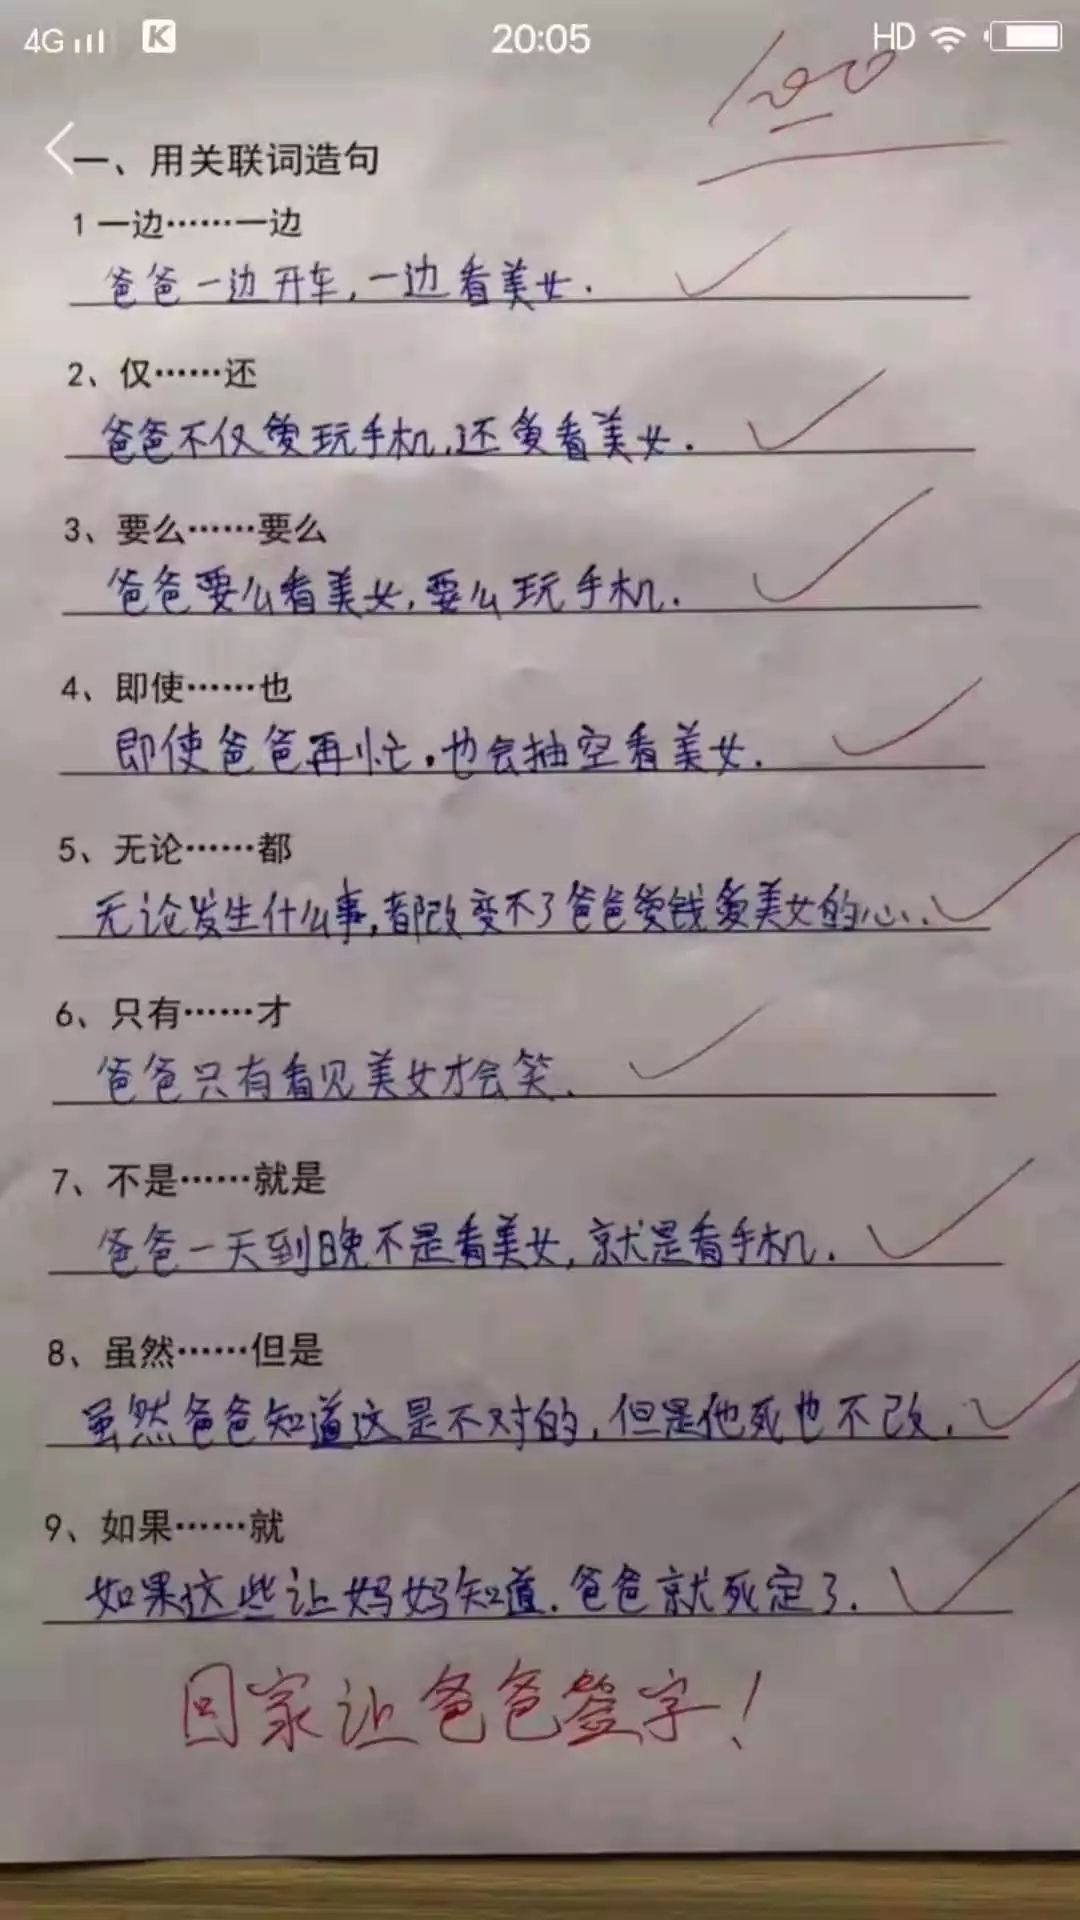 4G K 20:05 HD
100
一、用关联词造句
1 一边……一边
爸爸一边开车,一边看美女.
2、仅……还
爸爸不仅爱玩手机,还爱看美女.
3、要么……要么
爸爸要么看美女,要么玩手机.
4、即使……也
即使爸爸再忙.也会抽空看美女.
5、无论……都
无论发生什么事,都改变不了爸爸爱钱爱美女的心.
6、只有……才
爸爸只有看见美女才会笑.
7、不是……就是
爸爸一天到晚不是看美女,就是看手机.
8、虽然……但是
虽然爸爸知道这是不对的,但是他死也不改.
9、如果……就
如果这些让妈妈知道.爸爸就死定了.
回家让爸爸签字!